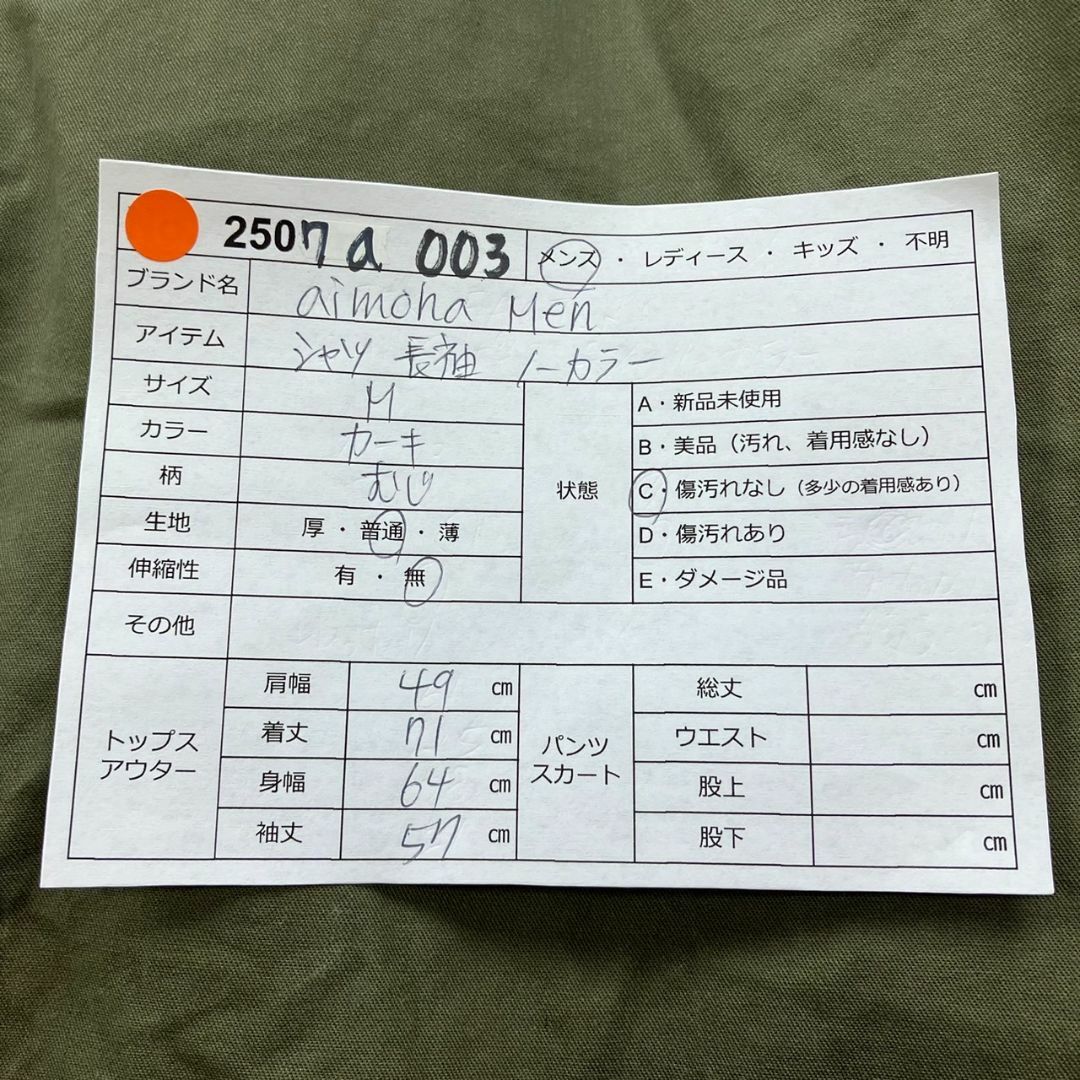 2507a 003 メンズ ・ レディース ・ キッズ ・ 不明
ブランド名 aimoha Men
アイテム シャツ 長袖 ノーカラー
サイズ M
カラー カーキ
柄 むじ
生地 厚・普通・薄
伸縮性 有 ・ 無
状態
A・新品未使用
B・美品（汚れ、着用感なし）
C・傷汚れなし（多少の着用感あり）
D・傷汚れあり
E・ダメージ品
その他
トップス
アウター
肩幅 49 ㎝
着丈 71 ㎝
身幅 64 ㎝
袖丈 57 ㎝
パンツ
スカート
総丈 ㎝
ウエスト ㎝
股上 ㎝
股下 ㎝